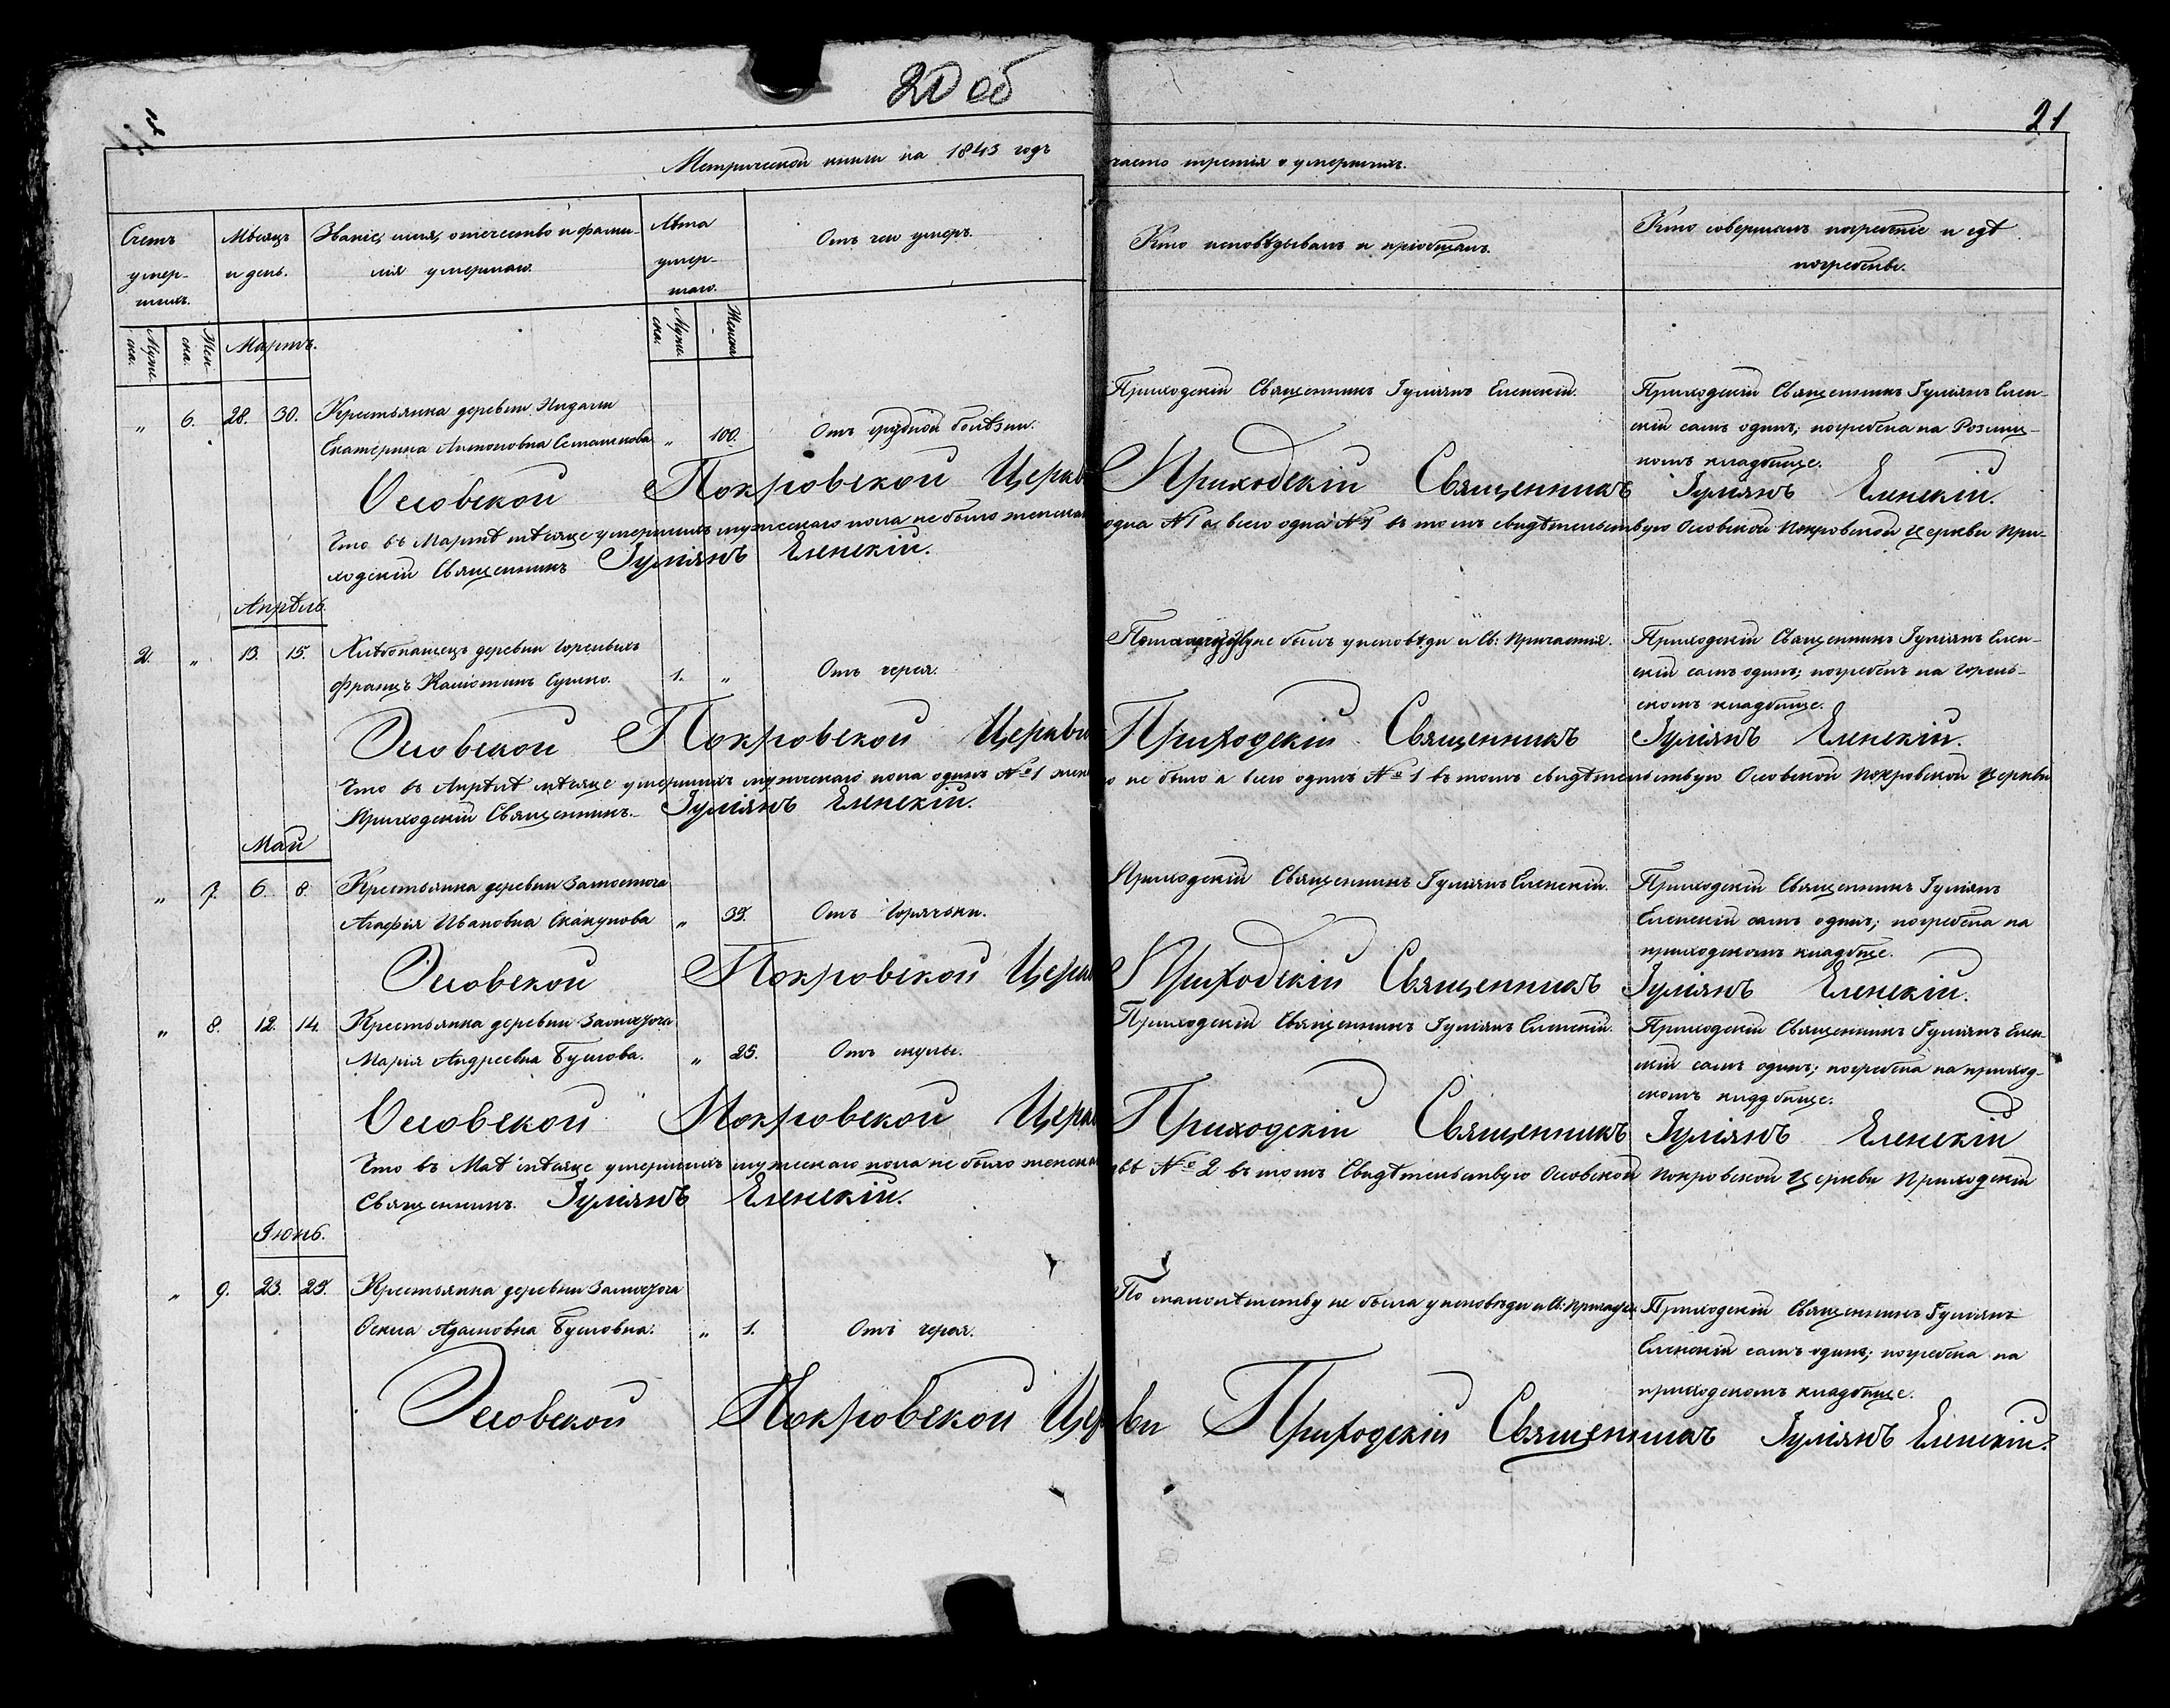 20 об
21
Метрической книги на 1843 годъ
часть третія о умершихъ.
Счетъ умер-шихъ.
Мѣсяцъ и день.
Званіе, имя, отечество и фами-
лія умершаго.
Лѣта умер-шаго.
Отъ чего умеръ.
Кто исповѣдывалъ и пріобщалъ.
Кто совершалъ погребеніе и гдѣ
погребены.
Муже-ска.
Жен-ска.
Мартъ.
Муже-ска.
Женска
„ 6. 28. 30. Крестьянка деревни
Екатерина Антоновна Сташкова „ 100. Отъ грудной болѣзни.
Приходскій Священникъ Іуліянъ Еленскій.
Приходскій Священникъ Іуліянъ Елен-
скій самъ одинъ; погребена на
номъ кладбище.
Осовской Покровской Церкви Приходскій Священникъ Іуліянъ Еленскій.
Что въ Мартѣ мѣсяце умершихъ мужескаго пола не было женска одна №1 а всего одна №1 въ томъ свидѣтельствую Осовской Покровской Церкви При-
ходскій Священникъ Іуліянъ Еленскій.
Апрѣль.
2. „ 13. 15. Хлѣбопашецъ деревни
Францъ Сушко. 1. „ Отъ чероя.
не былъ у исповѣди и Св: Причастія.
Приходскій Священникъ Іуліянъ Елен-
скій самъ одинъ; погребенъ на Горель-
скомъ кладбище.
Осовской Покровской Церкви Приходскій Священникъ Іуліянъ Еленскій.
Что въ Апрѣлѣ мѣсяце умершихъ мужескаго пола одинъ №1 не было а всего одинъ №1 въ томъ свидѣтельствую Осовской Покровской Церкви
Приходскій Священникъ. Іуліянъ Еленскій.
Май
„ 7. 6. 8. Крестьянка деревни Замосточа
Агафія Ивановна Скакунова „ 35. Отъ Горячьки.
Приходскій Священникъ Іуліянъ Еленскій.
Приходскій Священникъ Іуліянъ
Еленскій самъ одинъ; погребена на
приходскомъ кладбще.
Осовской Покровской Церкви Приходскій Священникъ Іуліянъ Еленскій.
„ 8. 12. 14. Крестьянка деревни Замосточа
Марія Андреевна Буслова. „ 25. Отъ скулы.
Приходскій Священникъ Іуліянъ Еленскій.
Приходскій Священникъ Іуліянъ Елен-
скій самъ одинъ; погребена на приход-
скомъ кладбище.
Осовской Покровской Церкви Приходскій Священникъ Іуліянъ Еленскій
Что въ Маѣ мѣсяце умершихъ мужескаго пола не было женска двѣ №2 въ томъ Свидѣтельствую Осовской Покровской Церкви Приходскій
Священникъ. Іуліянъ Еленскій.
Іюнь.
„ 9. 23. 25. Крестьянка деревни Замосточа
Адамовна Бусловна. „ 1. Отъ чероя.
По малолѣтству не была у исповѣди и Св:
Приходскій Священникъ Іуліянъ
Еленскій самъ одинъ; погребена на
приходскомъ кладбище.
Осовской Покровской Церкви Приходскій Священникъ Іуліянъ Еленскій.